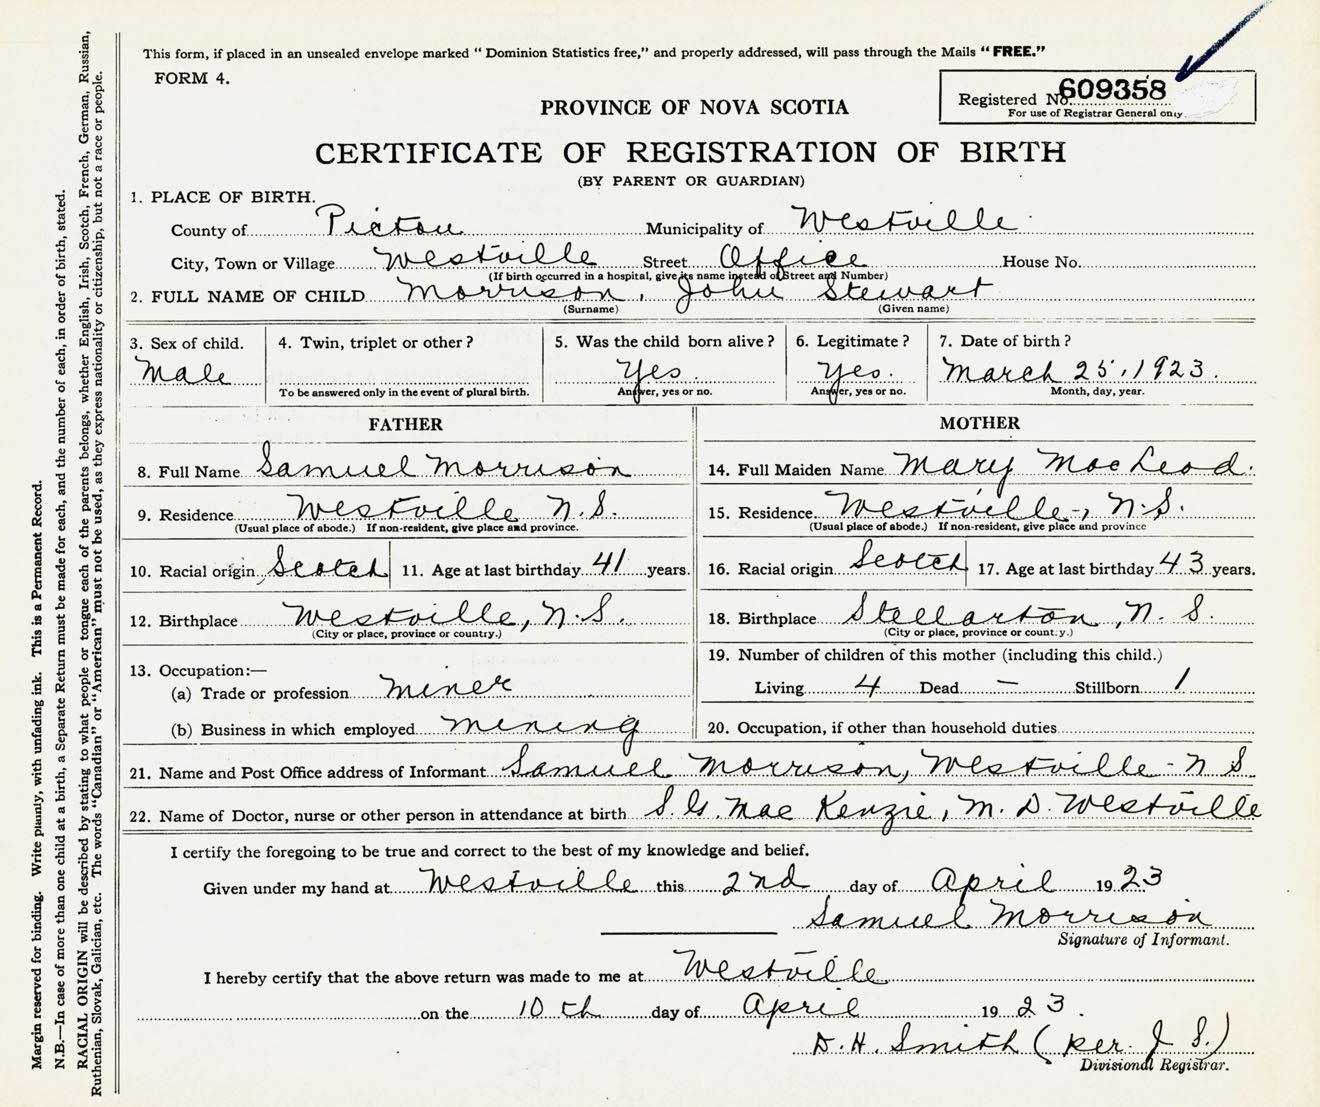 This form, if placed in an unsealed envelope marked "Dominion Statistics free," and properly addressed, will pass through the Mails "FREE."
FORM 4.
Registered No. 609358
For use of Registrar General only
PROVINCE OF NOVA SCOTIA
CERTIFICATE OF REGISTRATION OF BIRTH
(BY PARENT OR GUARDIAN)
1. PLACE OF BIRTH.
County of Pictou Municipality of Westville
City, Town or Village Westville Street Office House No.
(If birth occurred in a hospital, give its name instead of Street and Number)
2. FULL NAME OF CHILD Morrison, John Stewart
(Surname) (Given name)
3. Sex of child. 4. Twin, triplet or other? 5. Was the child born alive? 6. Legitimate? 7. Date of birth?
Male Yes. Yes. March 25, 1923.
To be answered only in the event of plural birth. Answer, yes or no. Answer, yes or no. Month, day, year.
FATHER MOTHER
8. Full Name Samuel Morrison 14. Full Maiden Name Mary MacLeod.
9. Residence Westville N.S. 15. Residence Westville-, N.S.
(Usual place of abode.) If non-resident, give place and province. (Usual place of abode.) If non-resident, give place and province
10. Racial origin Scotch 11. Age at last birthday 41 years. 16. Racial origin Scotch 17. Age at last birthday 43 years.
12. Birthplace Westville, N.S. 18. Birthplace Stellarton, N. S.
(City or place, province or country.) (City or place, province or country.)
13. Occupation:— 19. Number of children of this mother (including this child.)
(a) Trade or profession miner Living 4 Dead — Stillborn 1
(b) Business in which employed mining 20. Occupation, if other than household duties
21. Name and Post Office address of Informant Samuel Morrison, Westville - N S.
22. Name of Doctor, nurse or other person in attendance at birth S. G. MacKenzie, M. D. Westville
I certify the foregoing to be true and correct to the best of my knowledge and belief.
Given under my hand at Westville this 2nd day of April 1923
Samuel Morrison
Signature of Informant.
I hereby certify that the above return was made to me at Westville
on the 10th day of April 1923.
D. H. Smith (per. J S.)
Divisional Registrar.
Margin reserved for binding. Write plainly, with unfading ink. This is a Permanent Record.
N.B.—In case of more than one child at a birth, a Separate Return must be made for each, and the number of each, in order of birth, stated.
RACIAL ORIGIN will be described by stating to what people or tongue each of the parents belongs, whether English, Irish, Scotch, French, German, Russian,
Ruthenian, Slovak, Galician, etc. The words "Canadian" or "American" must not be used, as they express nationality or citizenship, but not a race or people.